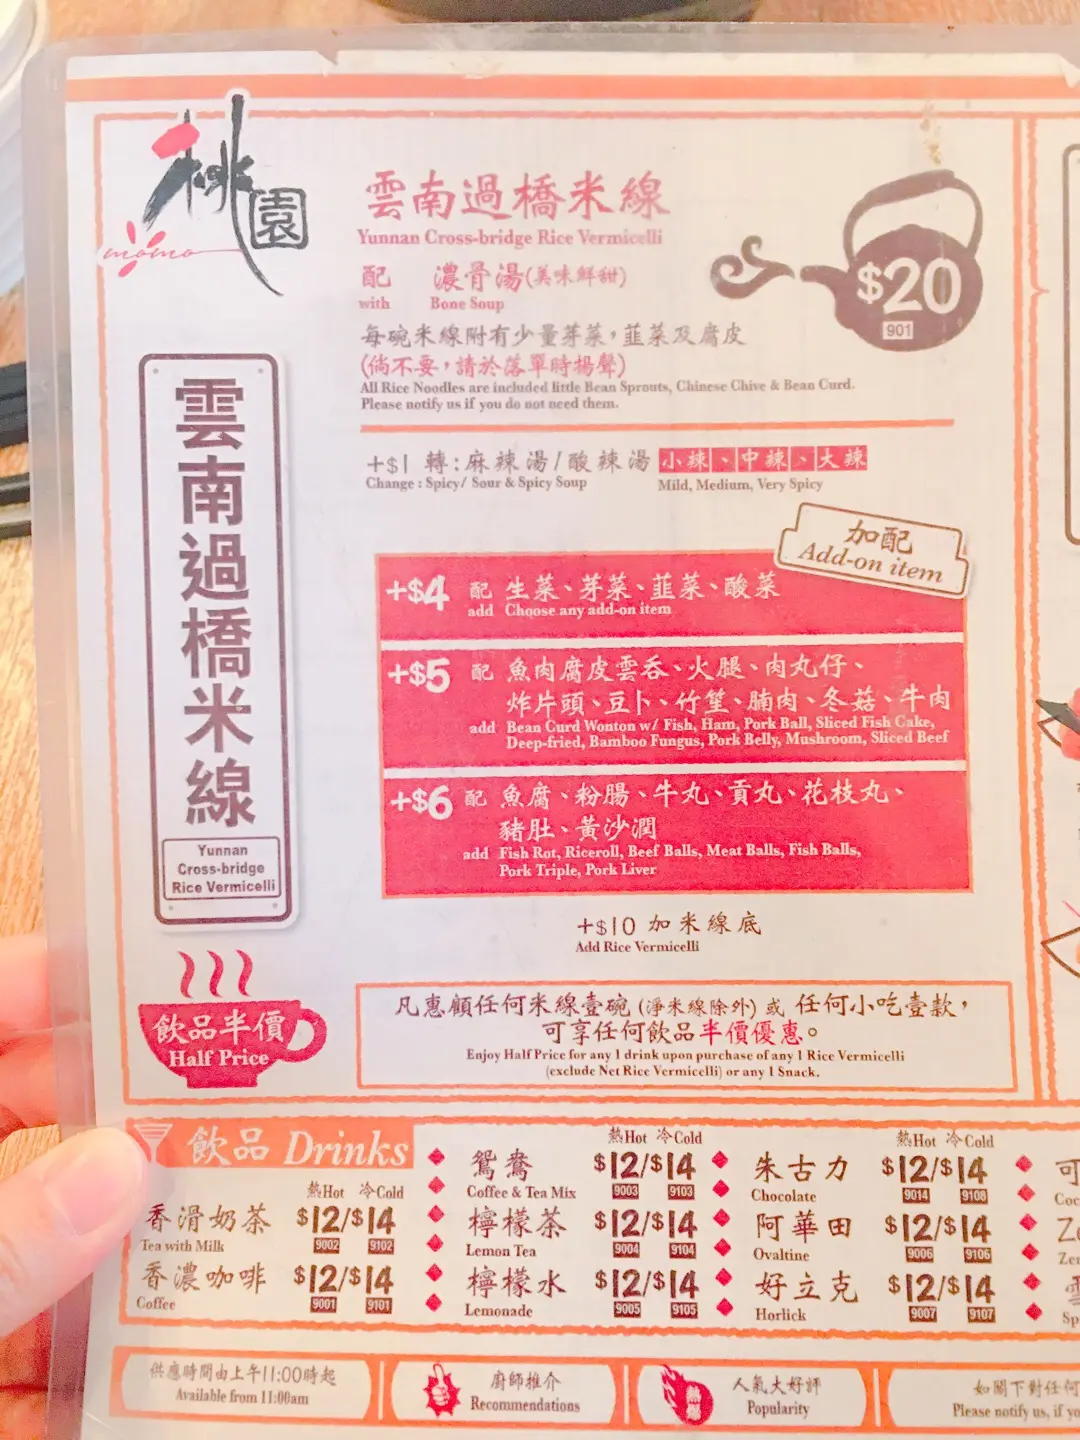 桃園
momo
雲南過橋米線
Yunnan Cross-bridge Rice Vermicelli
配 濃骨湯(美味鮮甜)
with Bone Soup
$20
901
每碗米線附有少量芽菜，韮菜及腐皮
(倘不要，請於落單時揚聲)
All Rice Noodles are included little Bean Sprouts, Chinese Chive & Bean Curd.
Please notify us if you do not need them.
+$1 轉:麻辣湯/酸辣湯 小辣、中辣、大辣
Change : Spicy/ Sour & Spicy Soup Mild, Medium, Very Spicy
雲南過橋米線
Yunnan
Cross-bridge
Rice Vermicelli
加配
Add-on item
+$4 配 生菜、芽菜、韮菜、酸菜
add Choose any add-on item
+$5 配 魚肉腐皮雲吞、火腿、肉丸仔、
炸片頭、豆卜、竹笙、腩肉、冬菇、牛肉
add Bean Curd Wonton w/ Fish, Ham, Pork Ball, Sliced Fish Cake,
Deep-fried, Bamboo Fungus, Pork Belly, Mushroom, Sliced Beef
+$6 配 魚腐、粉腸、牛丸、貢丸、花枝丸、
豬肚、黃沙潤
add Fish Rot, Riceroll, Beef Balls, Meat Balls, Fish Balls,
Pork Triple, Pork Liver
+$10 加米線底
Add Rice Vermicelli
飲品半價
Half Price
凡惠顧任何米線壹碗 (淨米線除外) 或 任何小吃壹款，
可享任何飲品半價優惠。
Enjoy Half Price for any 1 drink upon purchase of any 1 Rice Vermicelli
(exclude Net Rice Vermicelli) or any 1 Snack.
飲品 Drinks
熱Hot 冷Cold
香滑奶茶 $12/$14
Tea with Milk 9002 9102
香濃咖啡 $12/$14
Coffee 9001 9101
熱Hot 冷Cold
鴛鴦 $12/$14
Coffee & Tea Mix 9003 9103
檸檬茶 $12/$14
Lemon Tea 9004 9104
檸檬水 $12/$14
Lemonade 9005 9105
熱Hot 冷Cold
朱古力 $12/$14
Chocolate 9014 9108
阿華田 $12/$14
Ovaltine 9006 9106
好立克 $12/$14
Horlick 9007 9107
可
供應時間由上午11:00時起
Available from 11:00am
廚師推介
Recommendations
人氣大好評
Popularity
如閣下對任何
Please notify us, if yo